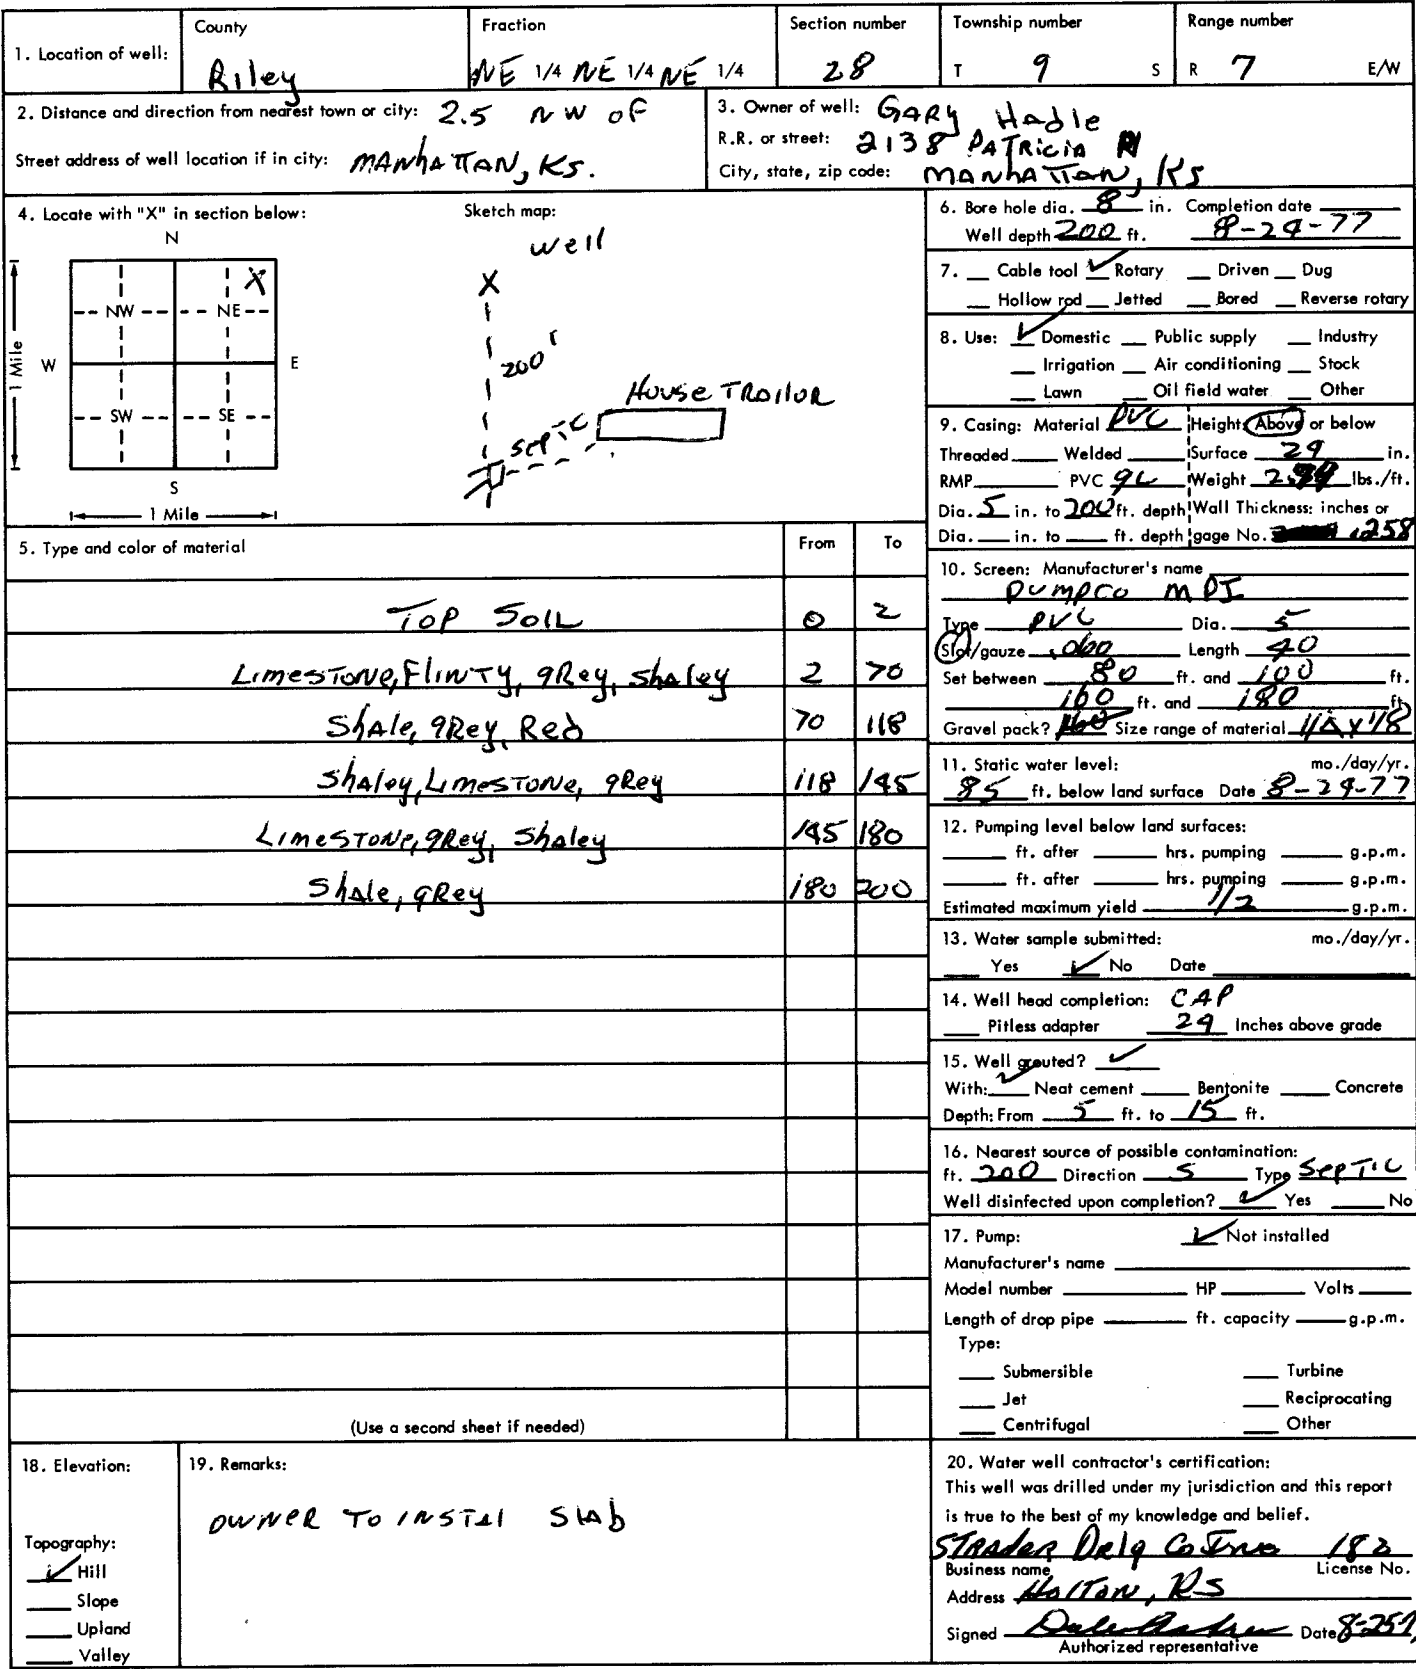 1. Location of well: County Riley Fraction NE 1/4 NE 1/4 NE 1/4 Section number 28 Township number T 9 S Range number R 7 E/W
2. Distance and direction from nearest town or city: 2.5 NW OF
Street address of well location if in city: MANHATTAN, KS.
3. Owner of well: GARY Hadle
R.R. or street: 2138 PATRICIA
City, state, zip code: MANHATTAN, KS
4. Locate with "X" in section below:
N
X
NW NE
W E
SW SE
S
1 Mile
1 Mile
Sketch map:
well
X
200'
House TRAILOR
SEPTIC
5. Type and color of material From To
TOP SOIL 0 2
LIMESTONE, FLINTY, gRey, shaley 2 70
Shale, gRey, Red 70 118
Shaley, LIMESTONE, gRey 118 145
LIMESTONE, gRey, Shaley 145 180
Shale, gRey 180 200
(Use a second sheet if needed)
6. Bore hole dia. 8 in. Completion date
Well depth 200 ft. 8-24-77
7. __ Cable tool ✓ Rotary __ Driven __ Dug
__ Hollow rod __ Jetted __ Bored __ Reverse rotary
8. Use: ✓ Domestic __ Public supply __ Industry
__ Irrigation __ Air conditioning __ Stock
__ Lawn __ Oil field water __ Other
9. Casing: Material PVC Height: Above or below
Threaded __ Welded __ Surface 24 in.
RMP __ PVC GL Weight lbs./ft.
Dia. 5 in. to 200 ft. depth Wall Thickness: inches or
Dia. __ in. to __ ft. depth gage No. .258
10. Screen: Manufacturer's name
PUMPCO MPI
Type PVC Dia. 5
Slot/gauze .060 Length 40
Set between 80 ft. and 100 ft.
160 ft. and 180 ft.
Gravel pack? Size range of material 1/4 x 1/8
11. Static water level: mo./day/yr.
85 ft. below land surface Date 8-24-77
12. Pumping level below land surfaces:
__ ft. after __ hrs. pumping __ g.p.m.
__ ft. after __ hrs. pumping __ g.p.m.
Estimated maximum yield 1/2 g.p.m.
13. Water sample submitted: mo./day/yr.
__ Yes ✓ No Date __
14. Well head completion: CAP
__ Pitless adapter 24 Inches above grade
15. Well grouted? ✓
With: ✓ Neat cement __ Bentonite __ Concrete
Depth: From 5 ft. to 15 ft.
16. Nearest source of possible contamination:
ft. 200 Direction S Type SEPTIC
Well disinfected upon completion? ✓ Yes __ No
17. Pump: ✓ Not installed
Manufacturer's name __
Model number __ HP __ Volts __
Length of drop pipe __ ft. capacity __ g.p.m.
Type:
__ Submersible __ Turbine
__ Jet __ Reciprocating
__ Centrifugal __ Other
18. Elevation:
Topography:
✓ Hill
__ Slope
__ Upland
__ Valley
19. Remarks:
OWNER TO INSTAL SLAB
20. Water well contractor's certification:
This well was drilled under my jurisdiction and this report
is true to the best of my knowledge and belief.
STRADER Drlg Co Inc 182
Business name License No.
Address HOLTON, KS
Signed Date 8-25-7
Authorized representative